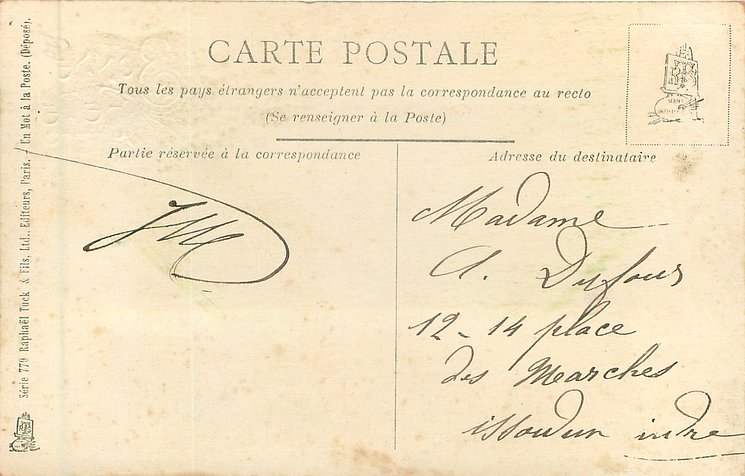 CARTE POSTALE
Tous les pays étrangers n'acceptent pas la correspondance au recto
(Se renseigner à la Poste)
Partie réservée à la correspondance
Adresse du destinataire
Madame
A. Dufour
12-14 place
des Marches
issoudun indre
Série 779 Raphaël Tuck & Fils, Ltd., Editeurs, Paris. / Un Mot à la Poste. (Déposé).